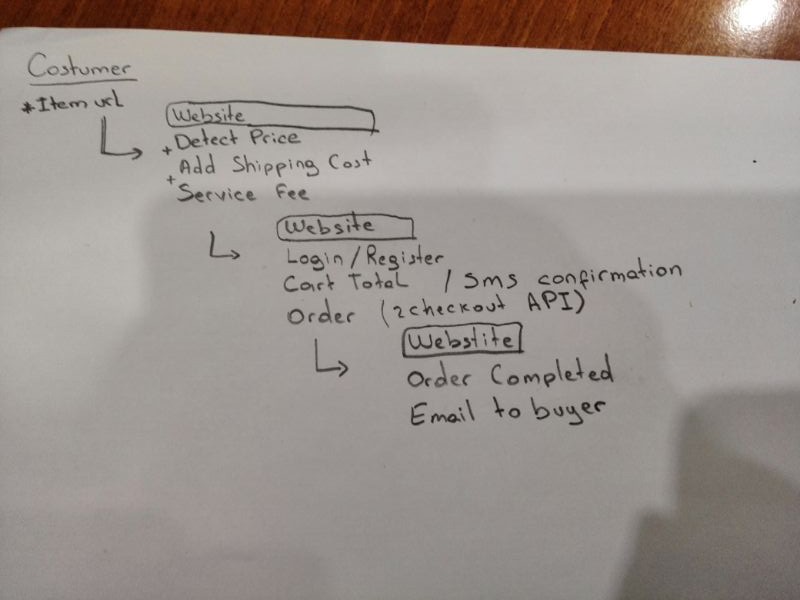 Costumer
*Item url
Website
+Detect Price
Add Shipping Cost
+Service Fee
Website
Login/Register
Cart Total / Sms confirmation
Order (2checkout API)
Webstite
Order Completed
Email to buyer